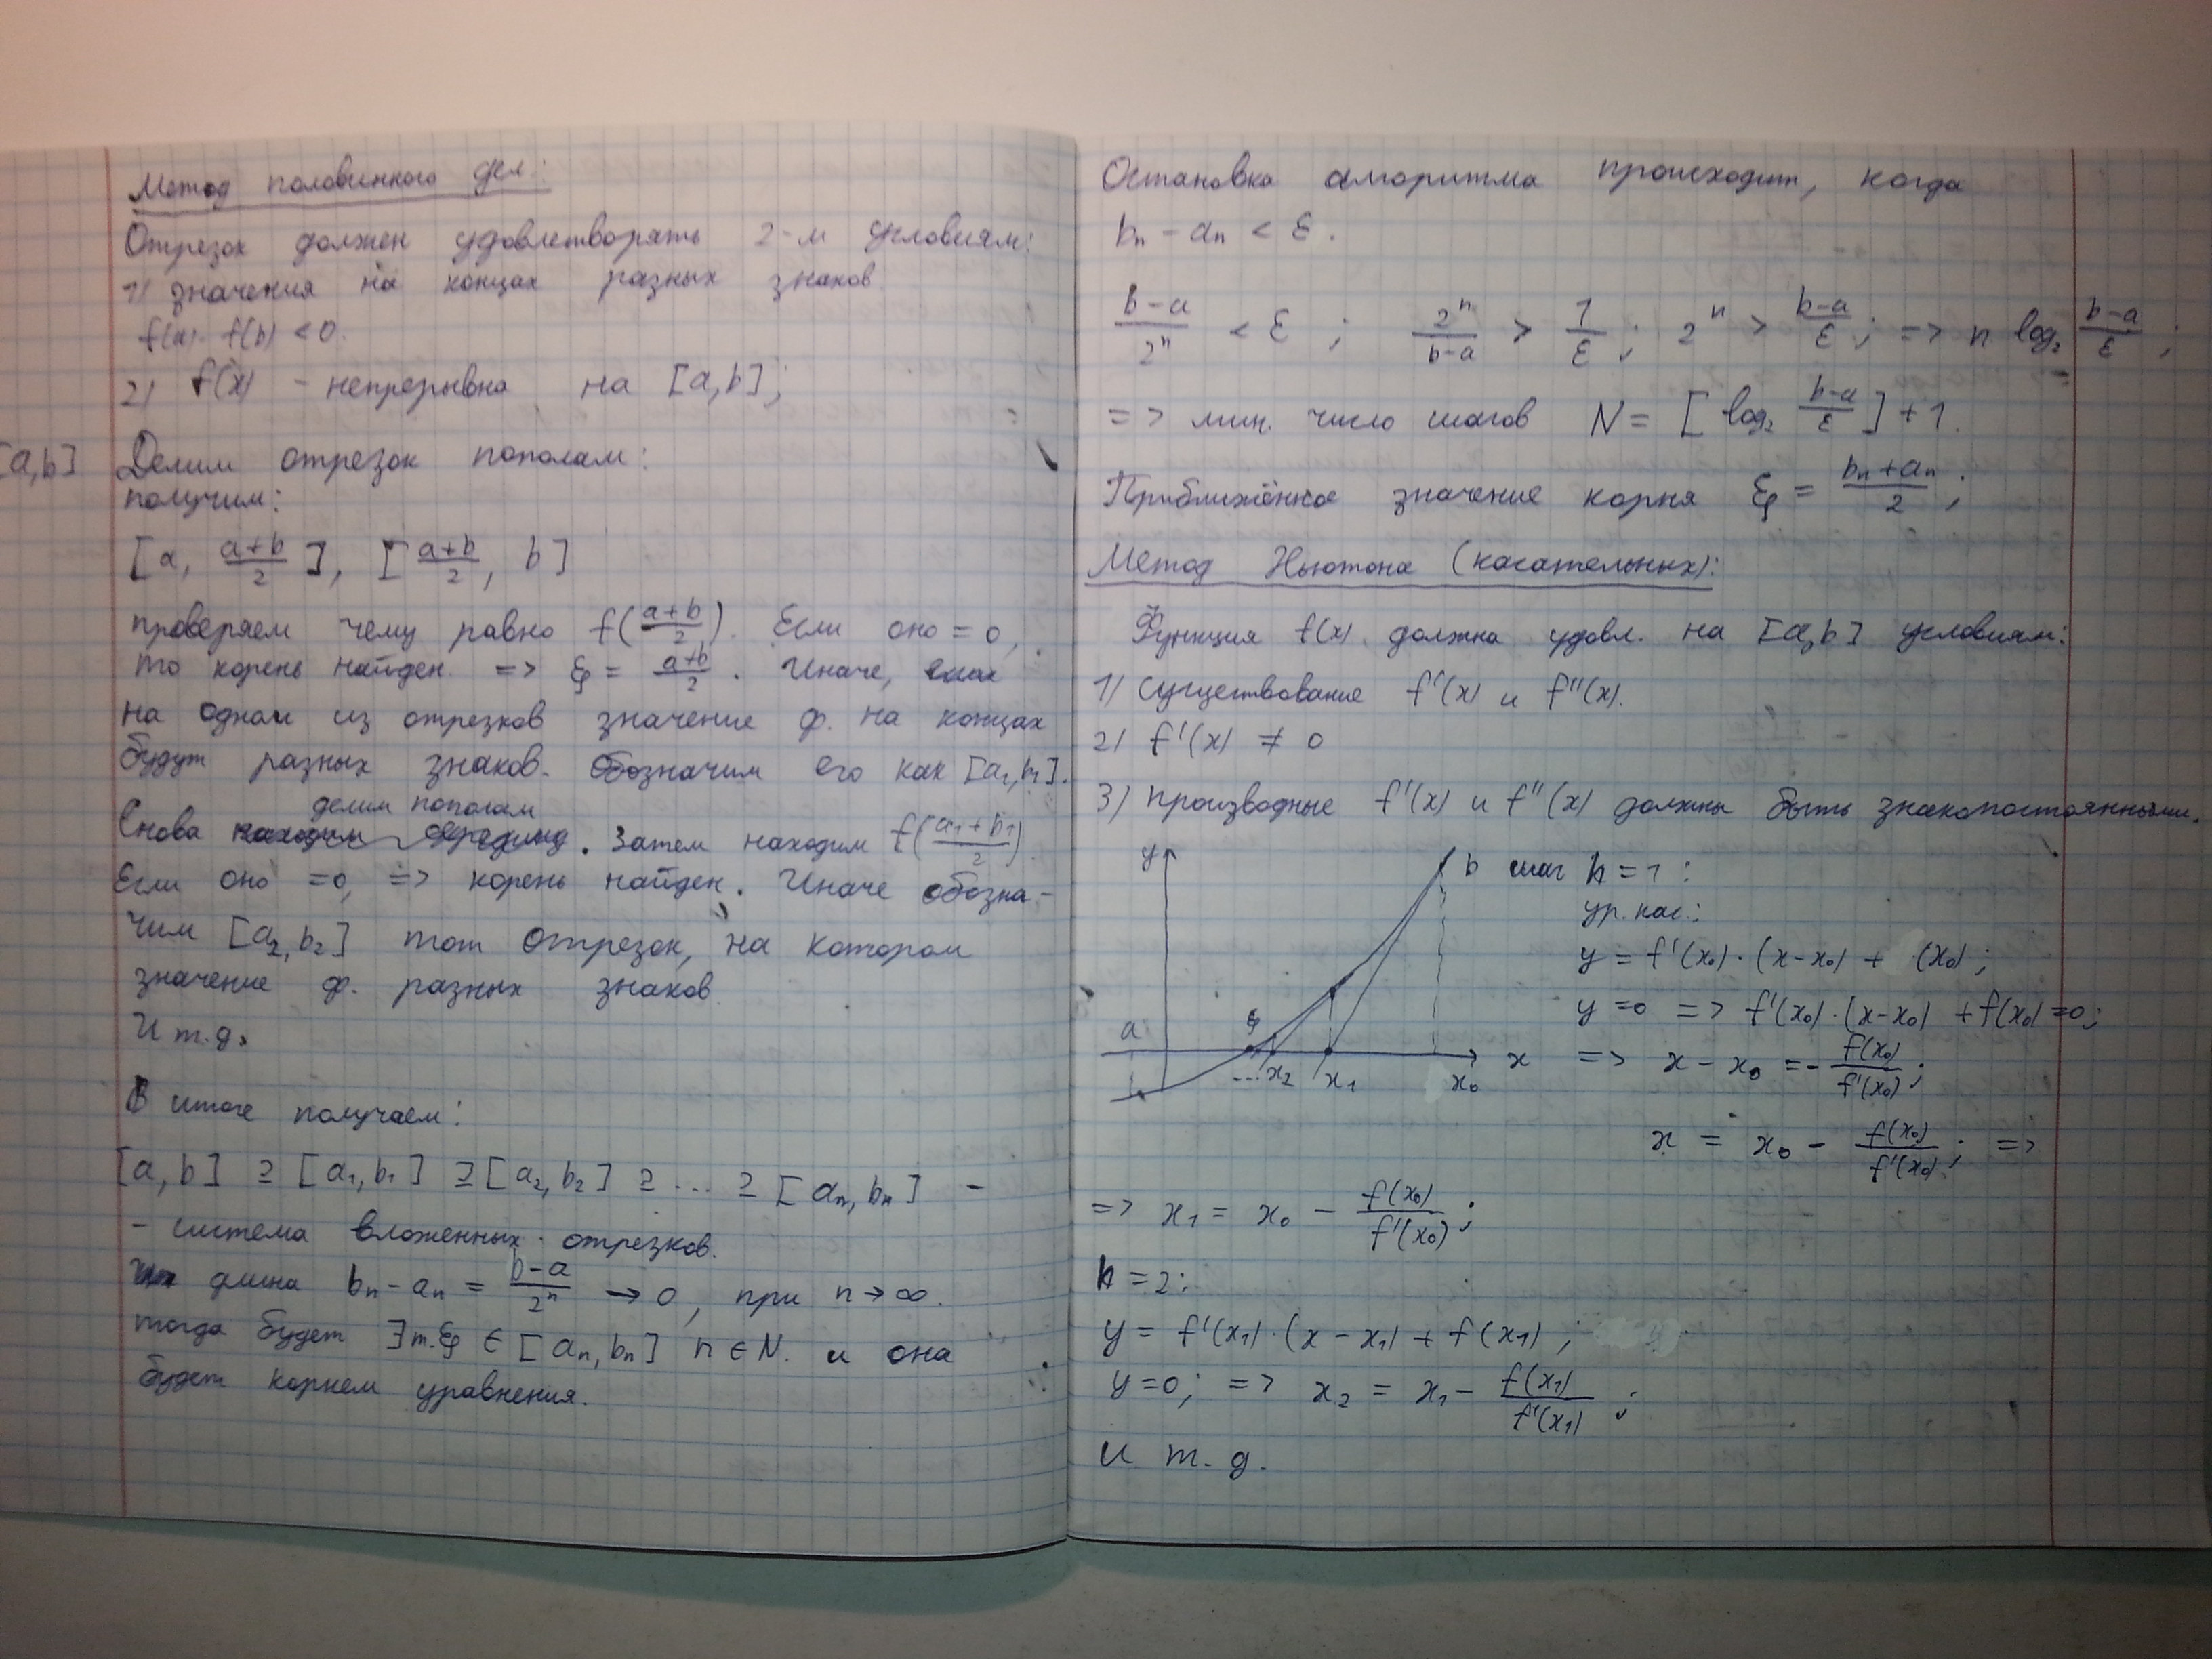 Метод половинного дел:
Отрезок должен удовлетворять 2-м условиям:
1) значения на концах разных знаков
f(a)·f(b) < 0.
2) f(x) - непрерывна на [a,b];
[a,b] Делим отрезок пополам:
получим:
[a, (a+b)/2], [(a+b)/2, b]
проверяем чему равно f((a+b)/2). Если оно = 0,
то корень найден. => ξ = (a+b)/2. Иначе,
на одном из отрезков значение ф. на концах
будут разных знаков. Обозначим его как [a₁,b₁].
делим пополам
Снова находим середину. Затем находим f((a₁+b₁)/2)
Если оно =0, => корень найден. Иначе обозна-
чим [a₂,b₂] тот отрезок, на котором
значение ф. разных знаков
И т.д.
В итоге получаем:
[a,b] ⊇ [a₁,b₁] ⊇ [a₂,b₂] ⊇ ... ⊇ [aₙ,bₙ] -
- система вложенных отрезков.
длина bₙ-aₙ = (b-a)/2ⁿ → 0, при n→∞.
тогда будет ∃ т.ξ ∈ [aₙ,bₙ] n ∈ N. и она
будет корнем уравнения.
Остановка алгоритма происходит, когда
bₙ - aₙ < ε.
(b-a)/2ⁿ < ε ; 2ⁿ/(b-a) > 1/ε ; 2ⁿ > (b-a)/ε ; => n log₂ (b-a)/ε ;
=> мин. число шагов N = [log₂ (b-a)/ε] + 1.
Приближённое значение корня ξ = (bₙ+aₙ)/2 ;
Метод Ньютона (касательных):
Функция f(x) должна удовл. на [a,b] условиям:
1) существование f'(x) и f''(x).
2) f'(x) ≠ 0
3) производные f'(x) и f''(x) должны быть знакопостоянными.
y b шаг n = 1 :
ур. кас.:
y = f'(x₀)·(x-x₀) + (x₀) ;
y = 0 => f'(x₀)·(x-x₀) + f(x₀) = 0;
a ξ ...x₂ x₁ x₀ x => x - x₀ = - f(x₀)/f'(x₀) ;
x = x₀ - f(x₀)/f'(x₀) ; =>
=> x₁ = x₀ - f(x₀)/f'(x₀) ;
n = 2:
y = f'(x₁)·(x - x₁) + f(x₁) ;
y = 0; => x₂ = x₁ - f(x₁)/f'(x₁) ;
и т. д.